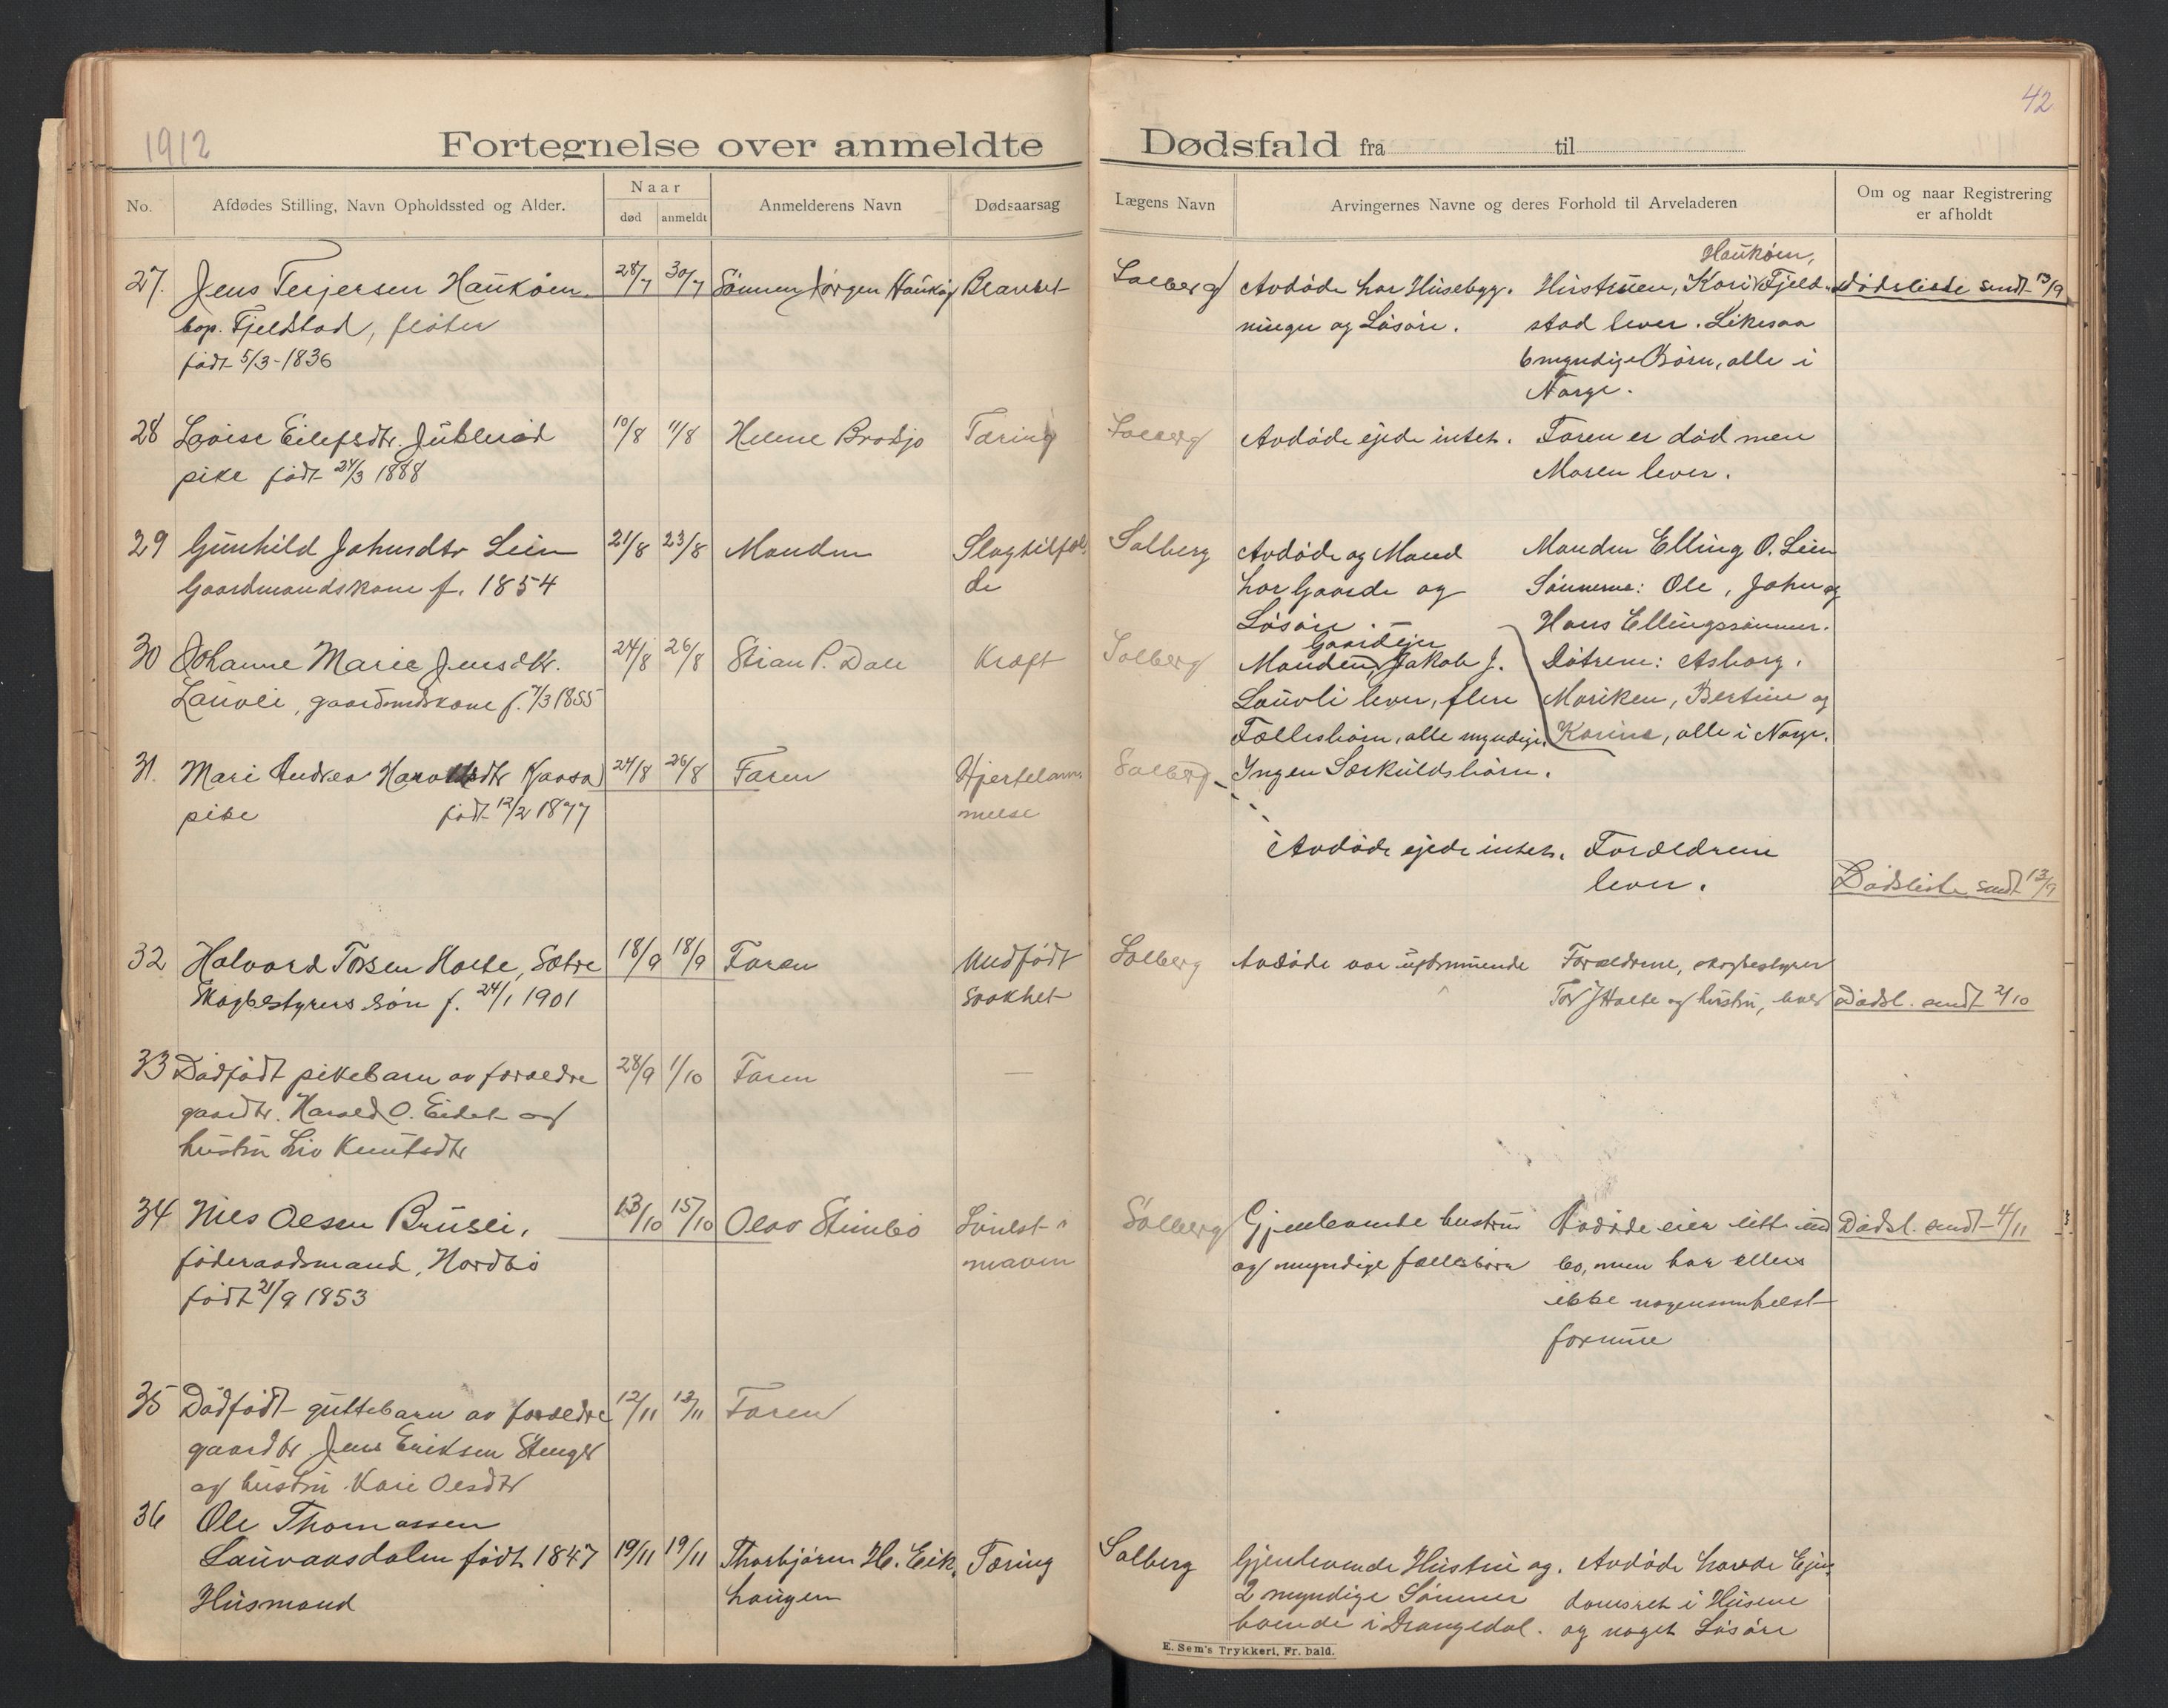 1912
42
Fortegnelse over anmeldte Dødsfald fra til
No.
Afdødes Stilling, Navn Opholdssted og Alder.
Naar
død
anmeldt
Anmelderens Navn
Dødsaarsag
Lægens Navn
Arvingernes Navne og deres Forhold til Arveladeren
Om og naar Registrering
er afholdt
27. Jens Terjersen Haukóm
bop. Fjeldstad, fløter
født 5/3-1836
28/7 30/7
Sønnen Jørgen
Solberg
Avdøde har Husebyg-
ninger og Løsøre.
Haukóm,
Hustruen, Kari Fjeld-
stad lever. Likesaa
6 myndige Børn, alle i
Norge.
Dødsliste sendt 13/9
28 Lovise Eilefsdtr.
pike født 24/3 1888
10/8 11/8
Helene Brødsjø
Tæring
Solberg
Avdøde ejede intet.
Faren er død men
Moren lever.
29 Gunhild Johnsdtr Leien
Gaardmandskone f. 1854
21/8 23/8
Manden
Slagtilfæl-
de
Solberg
Avdøde og Mand
har Gaarde og
Løsøre.
Manden Elling O. Leien
Sønnerne: Ole, John og
Hans Ellingssønner.
Døtrene: Asborg,
Mariken, Bertine og
Karine, alle i Norge.
30 Johanne Marie Jensdtr.
Lauvli, gaardmdskone f. 7/3 1855
24/8 26/8
Stian P. Dale
Kræft
Solberg
Gaardejer
Manden, Jakob J.
Lauvli lever, flere
Fællesbørn, alle myndige.
Ingen Særkuldsbørn.
31. Mari Andrea Haroldsdtr Kjaasa
pike født 12/2 1877
24/8 26/8
Faren
Hjertelam-
melse
Solberg
Avdøde ejede intet.
Forældrene
lever.
Dødsliste sendt 13/9
32 Halvord Torsen Holte, Sætre
Skogbestyrers søn f. 24/1 1901
18/9 18/9
Faren
Medfødt
svakhet
Solberg
Avdøde var uformuende
Forældrene, skogbestyrer
Tor J Holte og hustru, lever
Dødsl. sendt 2/10
33 Dødfødt pikebarn av forældre
gaardbr. Harald O. Eidet og
hustru Liv Knutsdtr
28/9 1/10
Faren
—
34 Nils Olsen Brusli,
føderaadsmand, Nordbø
født 21/9 1853
13/10 15/10
Olav Stimbo
Svulst i
maven
Solberg
Gjenlevende hustru
og myndige fællesbørn
Avdøde eier litt ind
bo, men har ellers
ikke nogensomhelst
formue
Dødsl. sendt 4/11
35 Dødfødt guttebarn av forældre
gaardbr. Jens Eriksen
og hustru Kari Olsdtr
12/11 13/11
Faren
36 Ole Thomassen
Lauvaasdalen født 1847
Husmand
19/11 19/11
Thorbjørn H. Eik-
haugen
Tæring
Solberg
Gjenlevende Hustru og
2 myndige Sønner
boende i Drangedal.
Avdøde havde Ejen-
domsret i Husene
og noget Løsøre
E. Sem's Trykkeri, Fr. hald.